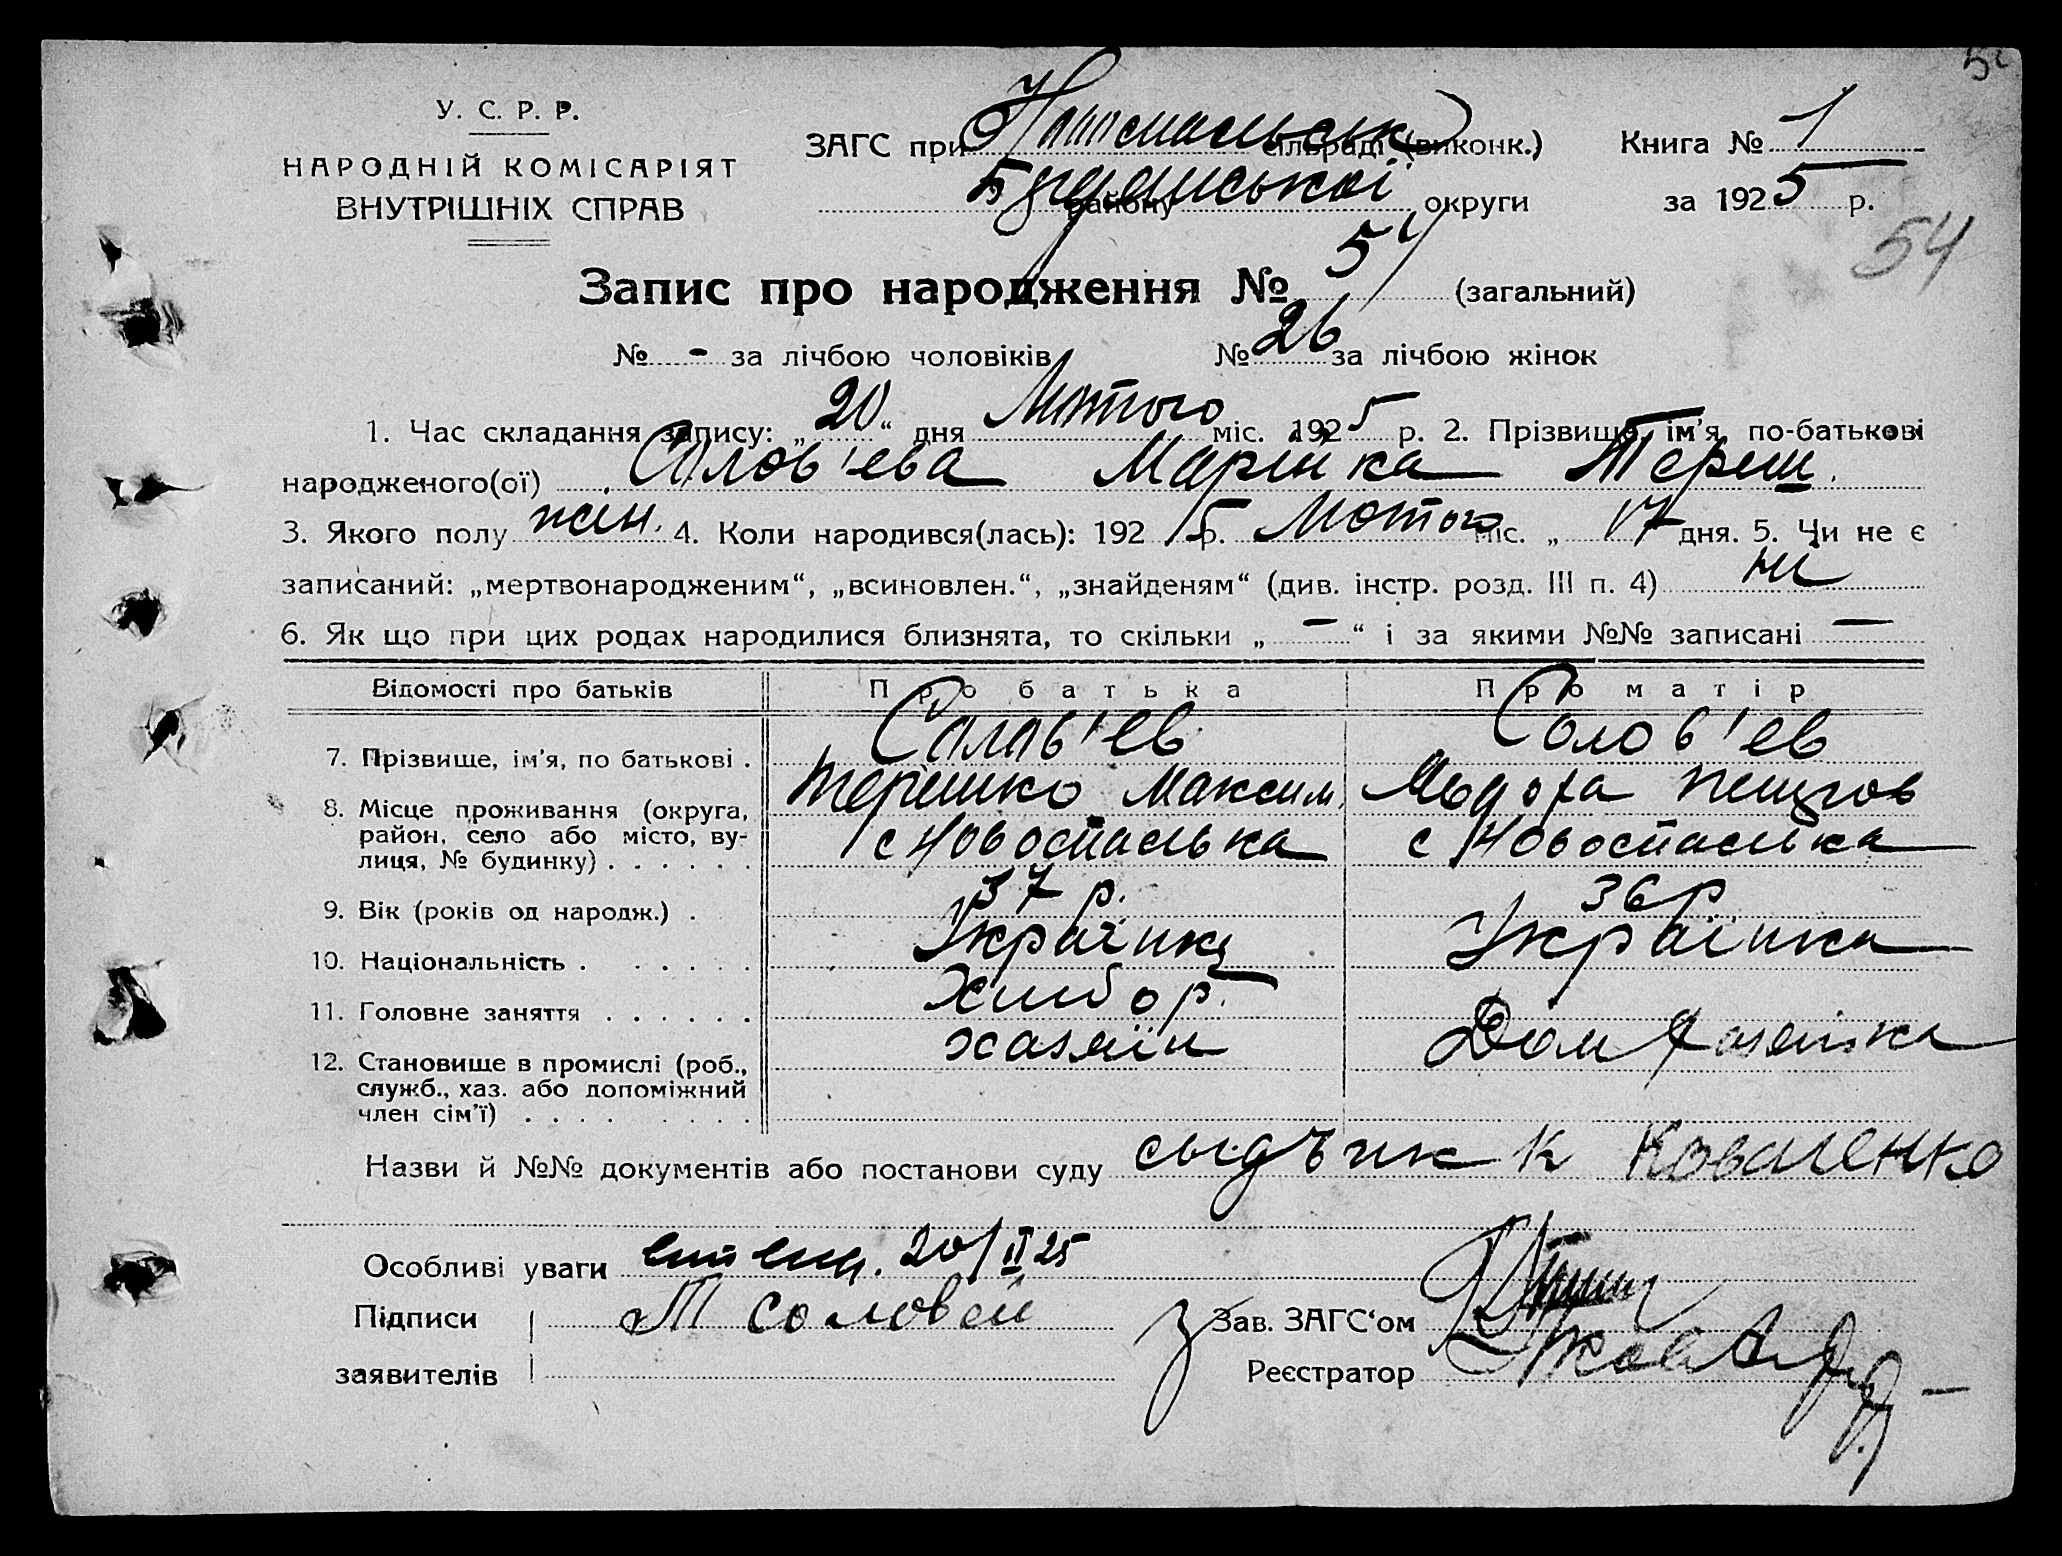 У. С. Р. Р.
НАРОДНІЙ КОМІСАРІЯТ
ВНУТРІШНІХ СПРАВ
ЗАГС при сільраді (виконк.)
району округи
Книга № 1
за 1925 р.
54
Запис про народження № 51 (загальний)
№ - за лічбою чоловіків № 26 за лічбою жінок
1. Час складання запису: „20“ дня Лютого міс. 1925 р. 2. Прізвище, ім'я, по-батькові
народженого(ої) Солов'ева Марійка Тереш.
3. Якого полу жін. 4. Коли народився(лась): 1925 р. Лютого міс. „17 дня. 5. Чи не є
записаний: „мертвонародженим“, „всиновлен.“, „знайденям“ (див. інстр. розд. III п. 4) ні
6. Як що при цих родах народилися близнята, то скільки „ — “ і за якими №№ записані —
Відомості про батьків Про батька Про матір
7. Прізвище, ім'я, по батькові . Солов'ев Солов'ев
Терешко Максим.
8. Місце проживання (округа, район, село або місто, вулиця, № будинку) . . . . . . с Новоспаська с Новоспаська
9. Вік (років од народж.) . 37 р. 36 р
10. Національність . . . . . . Українка
11. Головне заняття . . . . . . Хлибор.
12. Становище в промислі (роб., служб., хаз. або допоміжний член сім'ї) . . . . . . . . хазяїн Дом
Назви й №№ документів або постанови суду К Коваленко
Особливі уваги 20/II 25
Підписи Т Соловей
заявителів
Зав. ЗАГС'ом
Реєстратор